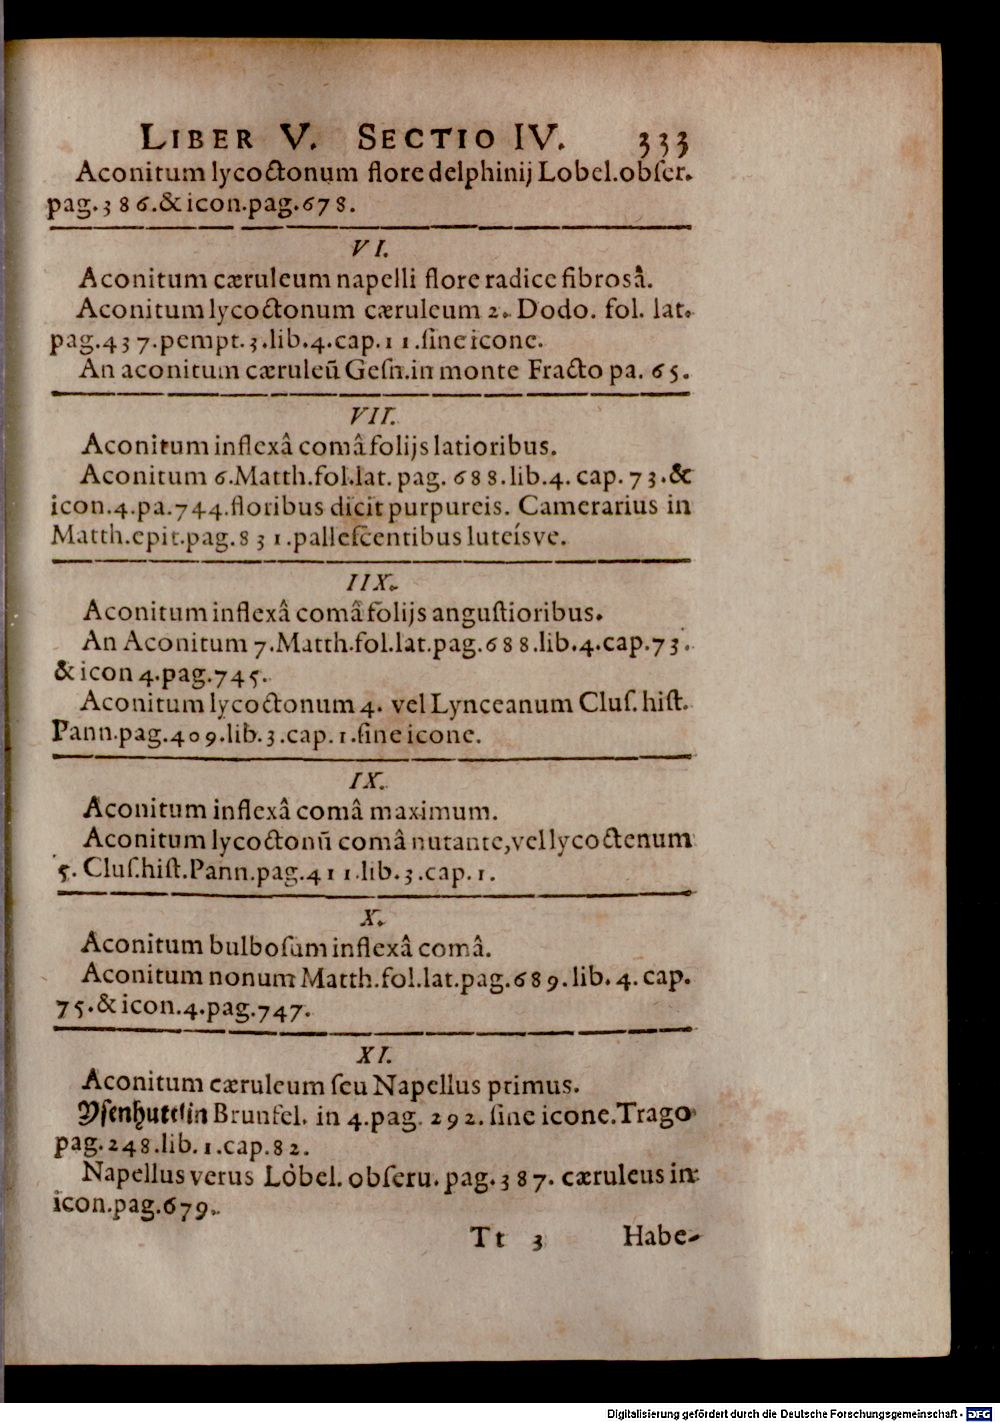 LIBER V. SECTIO IV. 333
Aconitum lycoctonum flore delphinij Lobel.obser.
pag.386.& icon.pag.678.
VI.
Aconitum cæruleum napelli flore radice fibrosâ.
Aconitum lycoctonum cæruleum 2. Dodo. fol. lat.
pag.437.pempt.3.lib.4.cap.11.sine icone.
An aconitum cæruleũ Gesn.in monte Fracto pa. 65.
VII.
Aconitum inflexâ comâ folijs latioribus.
Aconitum 6.Matth.fol.lat. pag. 688.lib.4. cap. 73.&
icon.4.pa.744.floribus dicit purpureis. Camerarius in
Matth.epit.pag.831.pallescentibus luteísve.
IIX.
Aconitum inflexâ comâ folijs angustioribus.
An Aconitum 7.Matth.fol.lat.pag.688.lib.4.cap.73.
& icon 4.pag.745.
Aconitum lycoctonum 4. vel Lynceanum Clus. hist.
Pann.pag.409.lib.3.cap.1.sine icone.
IX.
Aconitum inflexâ comâ maximum.
Aconitum lycoctonũ comâ nutante,vel lycoctenum
5. Clus.hist.Pann.pag.411.lib.3.cap.1.
X.
Aconitum bulbosum inflexâ comâ.
Aconitum nonum Matth.fol.lat.pag.689.lib.4. cap.
75.& icon.4.pag.747.
XI.
Aconitum cæruleum seu Napellus primus.
Ysenhutlin Brunfel. in 4.pag. 292. sine icone.Trago
pag.248.lib.1.cap.82.
Napellus verus Lobel. obseru. pag.387. cæruleus in
icon.pag.679.
Tt 3 Habe-
Digitalisierung gefördert durch die Deutsche Forschungsgemeinschaft - DFG